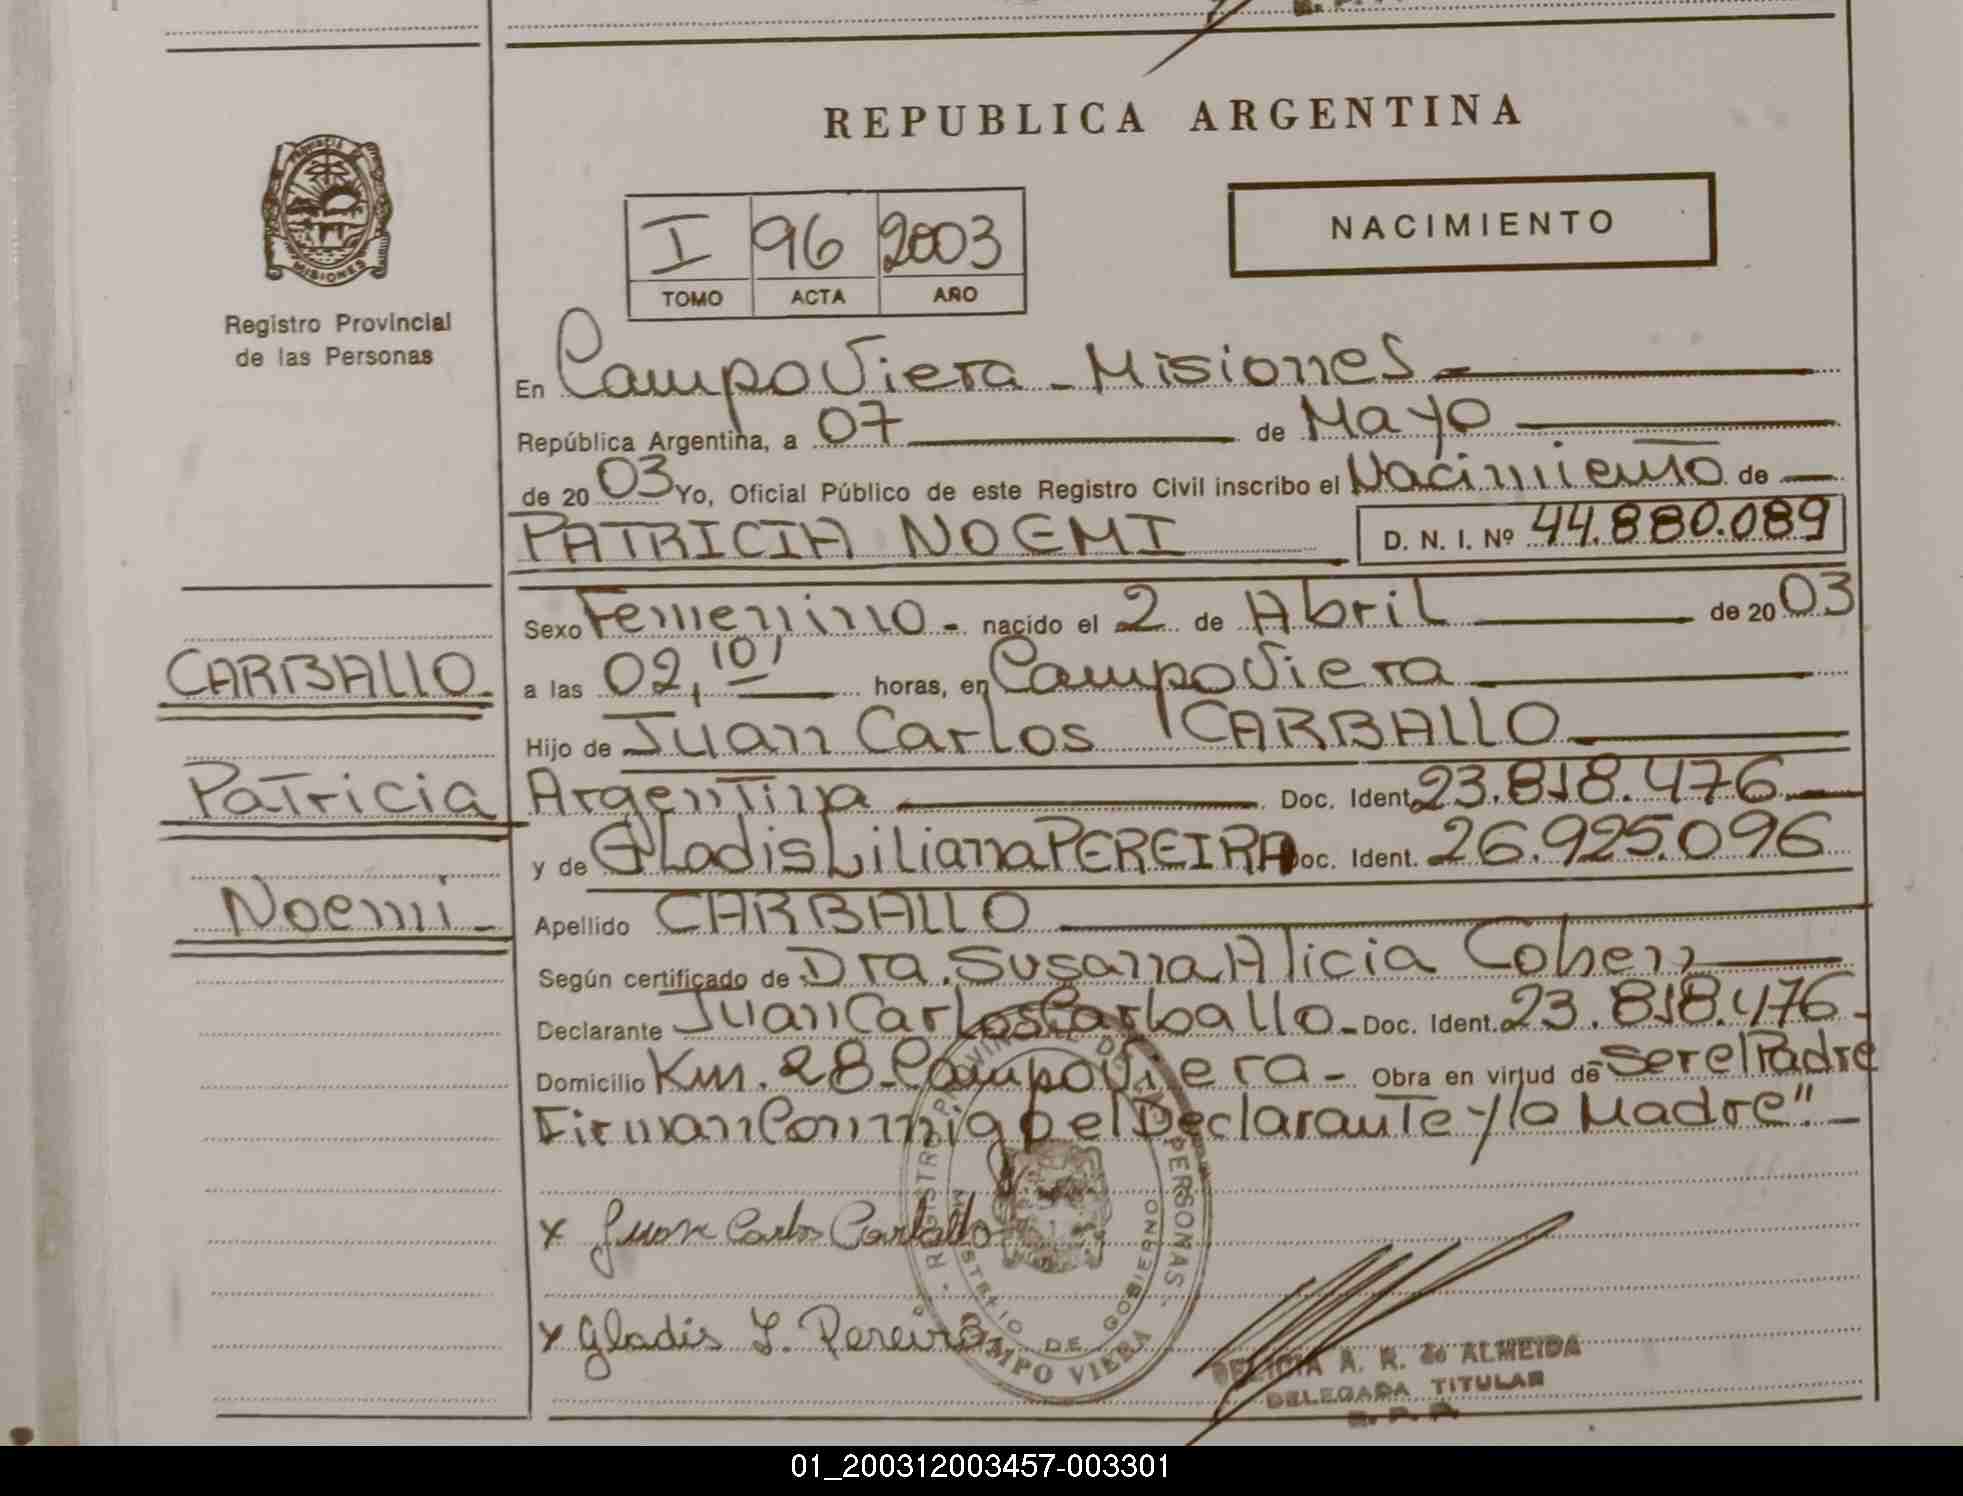 REPUBLICA ARGENTINA
PROVINCIA DE
MISIONES
Registro Provincial
de las Personas
NACIMIENTO
I 96 2003
TOMO ACTA AÑO
En Campo Viera - Misiones
República Argentina, a 07 de Mayo
de 2003 Yo, Oficial Público de este Registro Civil inscribo el Nacimiento de
PATRICIA NOEMI D. N. I. Nº 44.880.089
Sexo Femenino - nacido el 2 de Abril de 2003
CARBALLO
a las 02,10' horas, en Campo Viera
Hijo de Juan Carlos CARBALLO
Patricia
Argentina Doc. Ident. 23.818.476
y de Gladis Liliana PEREIRA Doc. Ident. 26.925.096
Noemi -
Apellido CARBALLO
Según certificado de Dra. Susana Alicia Cohen
Declarante Juan Carlos Carballo - Doc. Ident. 23.818.476 -
Domicilio Km. 28 - Campo Viera - Obra en virtud de ser el Padre
Firman Conmigo el Declarante y la Madre" -
x Juan Carlos Carballo
x Gladis L. Pereira
REGISTRO PROVINCIAL DE LAS PERSONAS
MINISTERIO DE GOBIERNO
CAMPO VIERA
DELICIA A. R. de ALMEIDA
DELEGADA TITULAR
R. P. P.
01_200312003457-003301